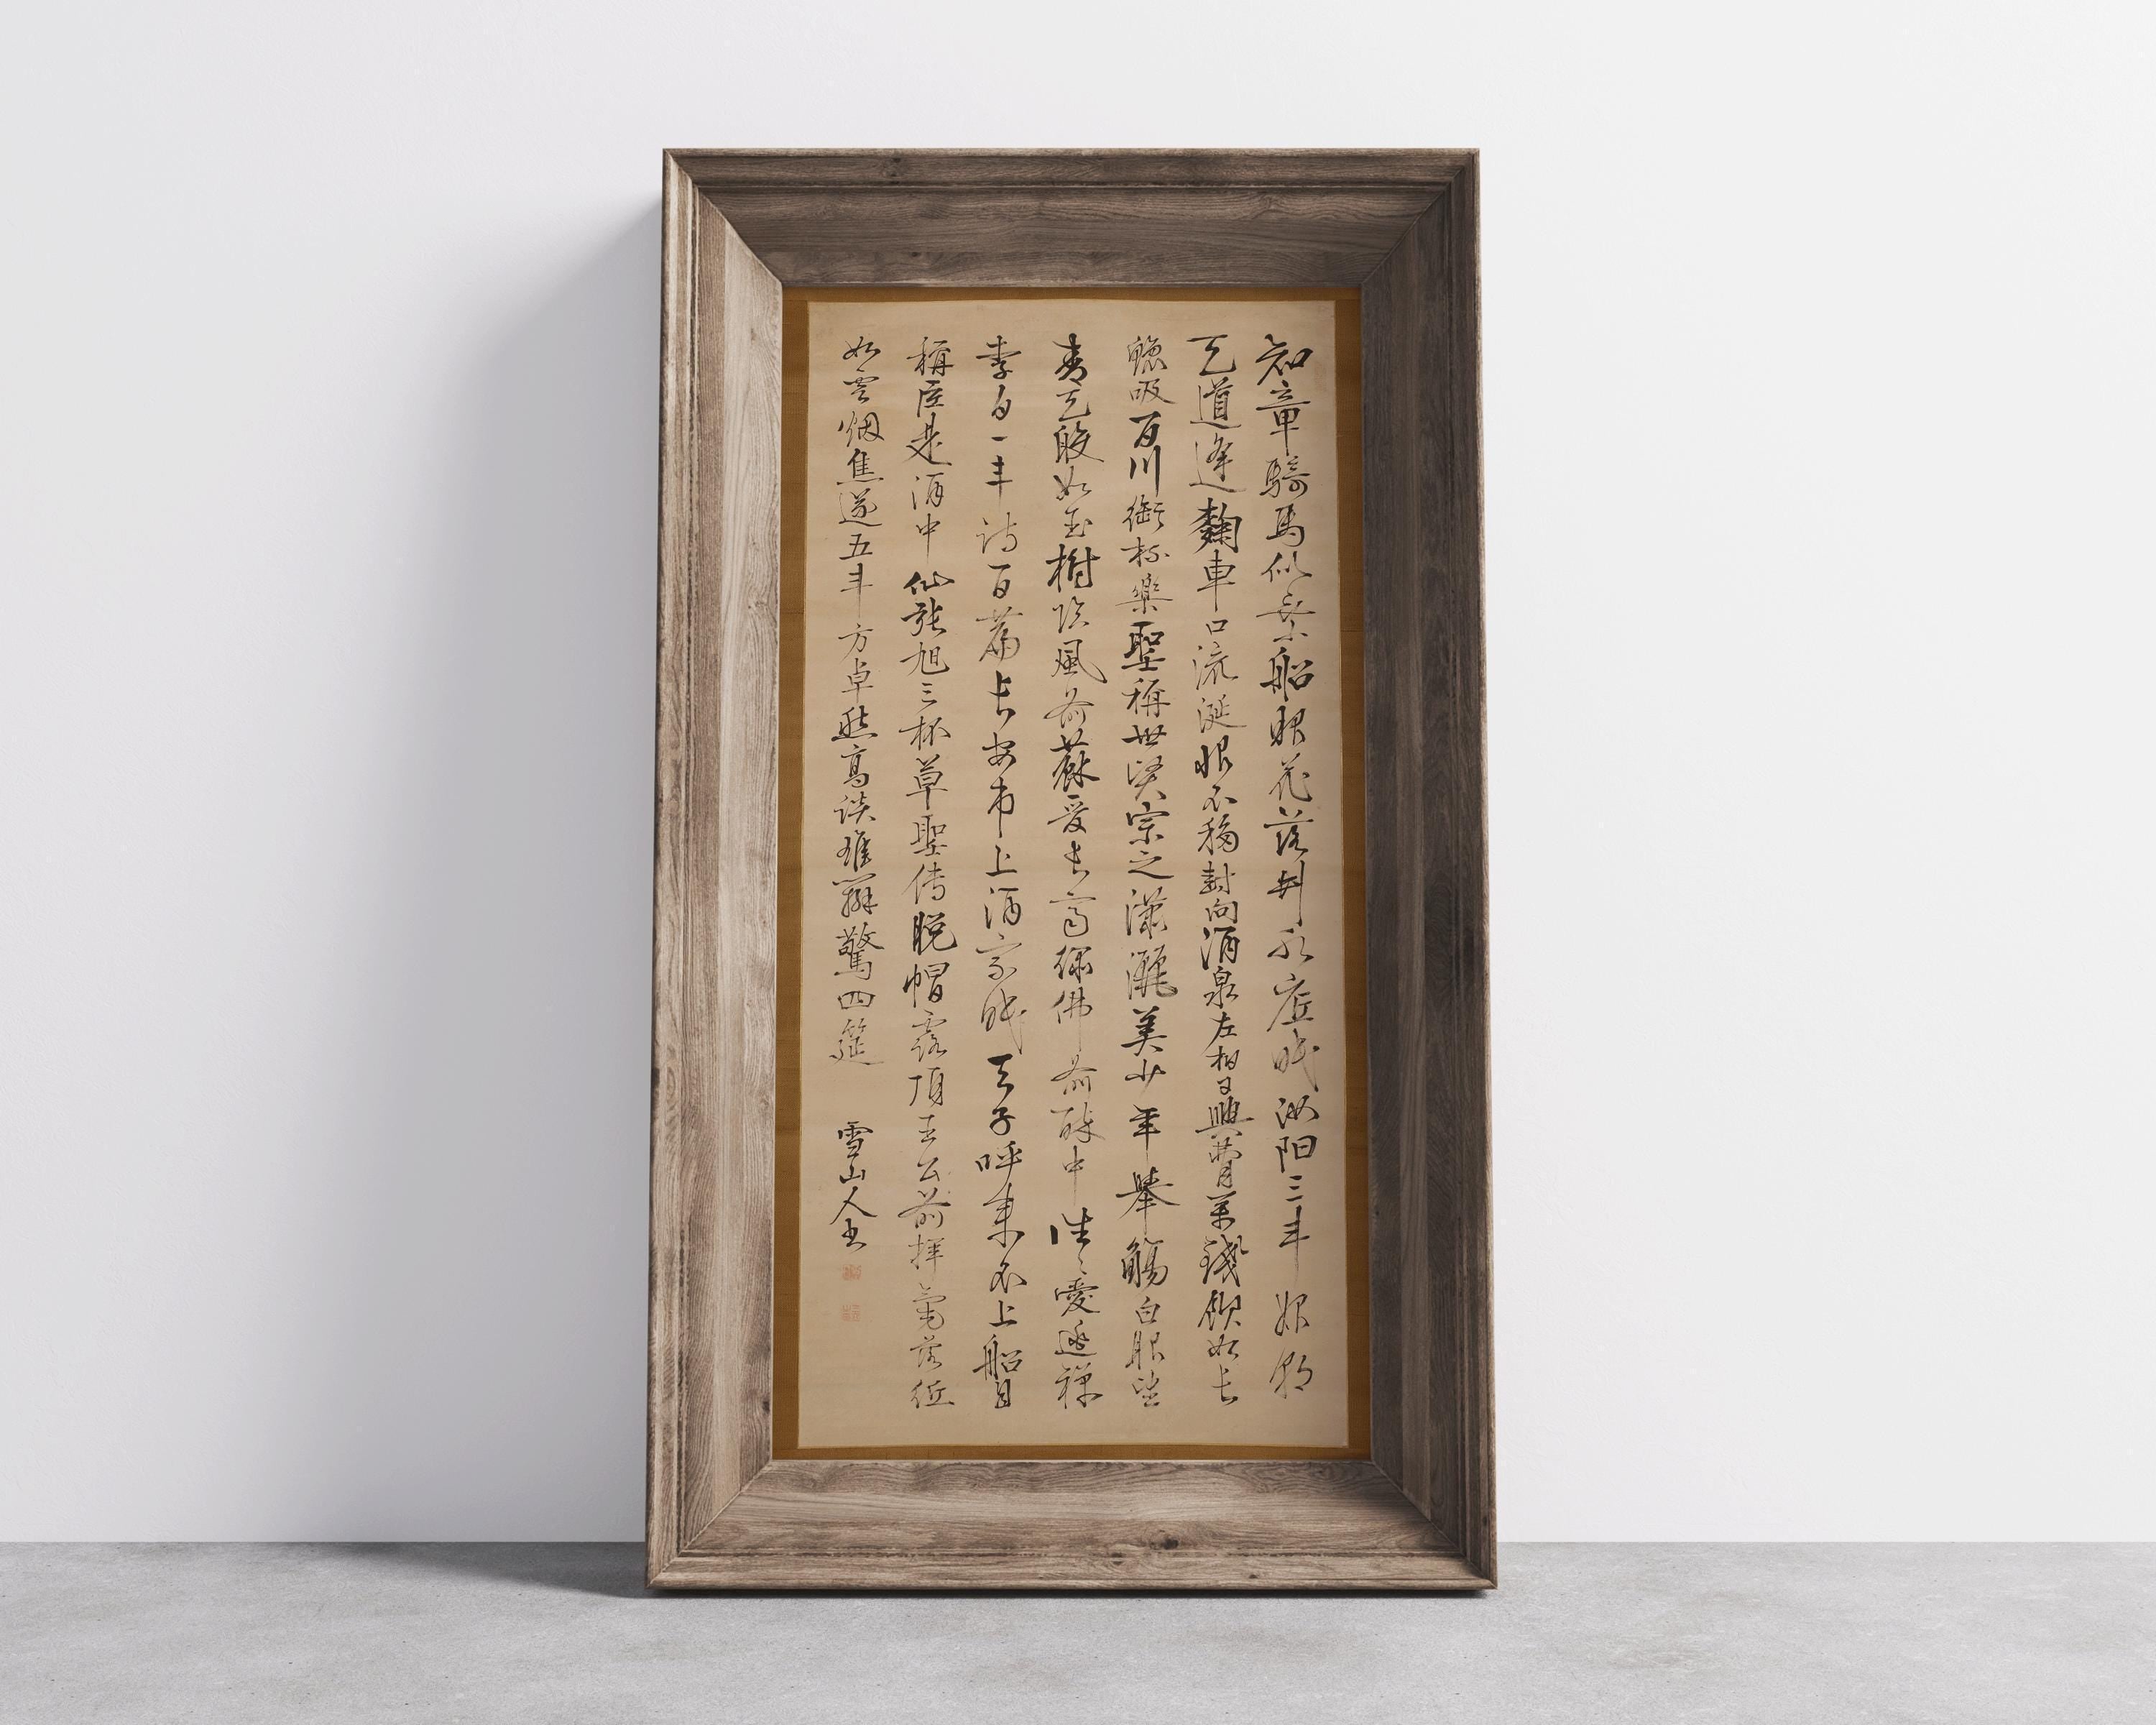 知章騎馬似乘船眼花落井水底眠汝陽三斗始朝
天道逢麴車口流涎恨不移封向酒泉左相日興費萬錢飲如長
鯨吸百川銜杯樂聖稱世賢宗之瀟灑美少年舉觴白眼望
青天皎如玉樹臨風前蘇晉長齋繡佛前醉中往々愛逃禪
李白一斗詩百篇長安市上酒家眠天子呼来不上船自
稱臣是酒中仙張旭三杯草聖傳脱帽露頂王公前揮毫落紙
如雲烟焦遂五斗方卓然高談雄辯驚四筵
雪山人書